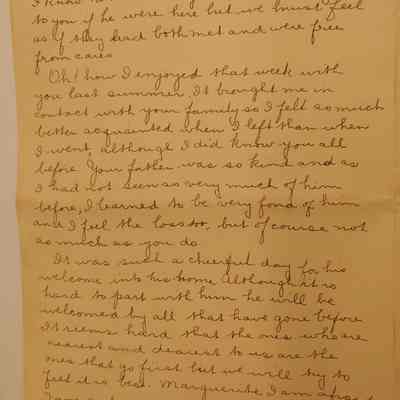 to you if he were here but we must feel
as if they had both met and were free
from cares
Oh! how I enjoyed that week with
you last summer. It brought me in
contact with your family so I felt so much
better acquainted when I left than when
I went, although I did know you all
before. Your father was so kind and as
I had not seen as very much of him
before, I learned to be very fond of him
and I feel the loss too, but of course not
as much as you do
It was such a cheerful day for his
welcome into his home although it is
hard to part with him he will be
welcomed by all that have gone before
It seems hard that the ones who are
nearest and dearest to us are the
ones that go first but we will try to
feel it is best. Marguerite I am